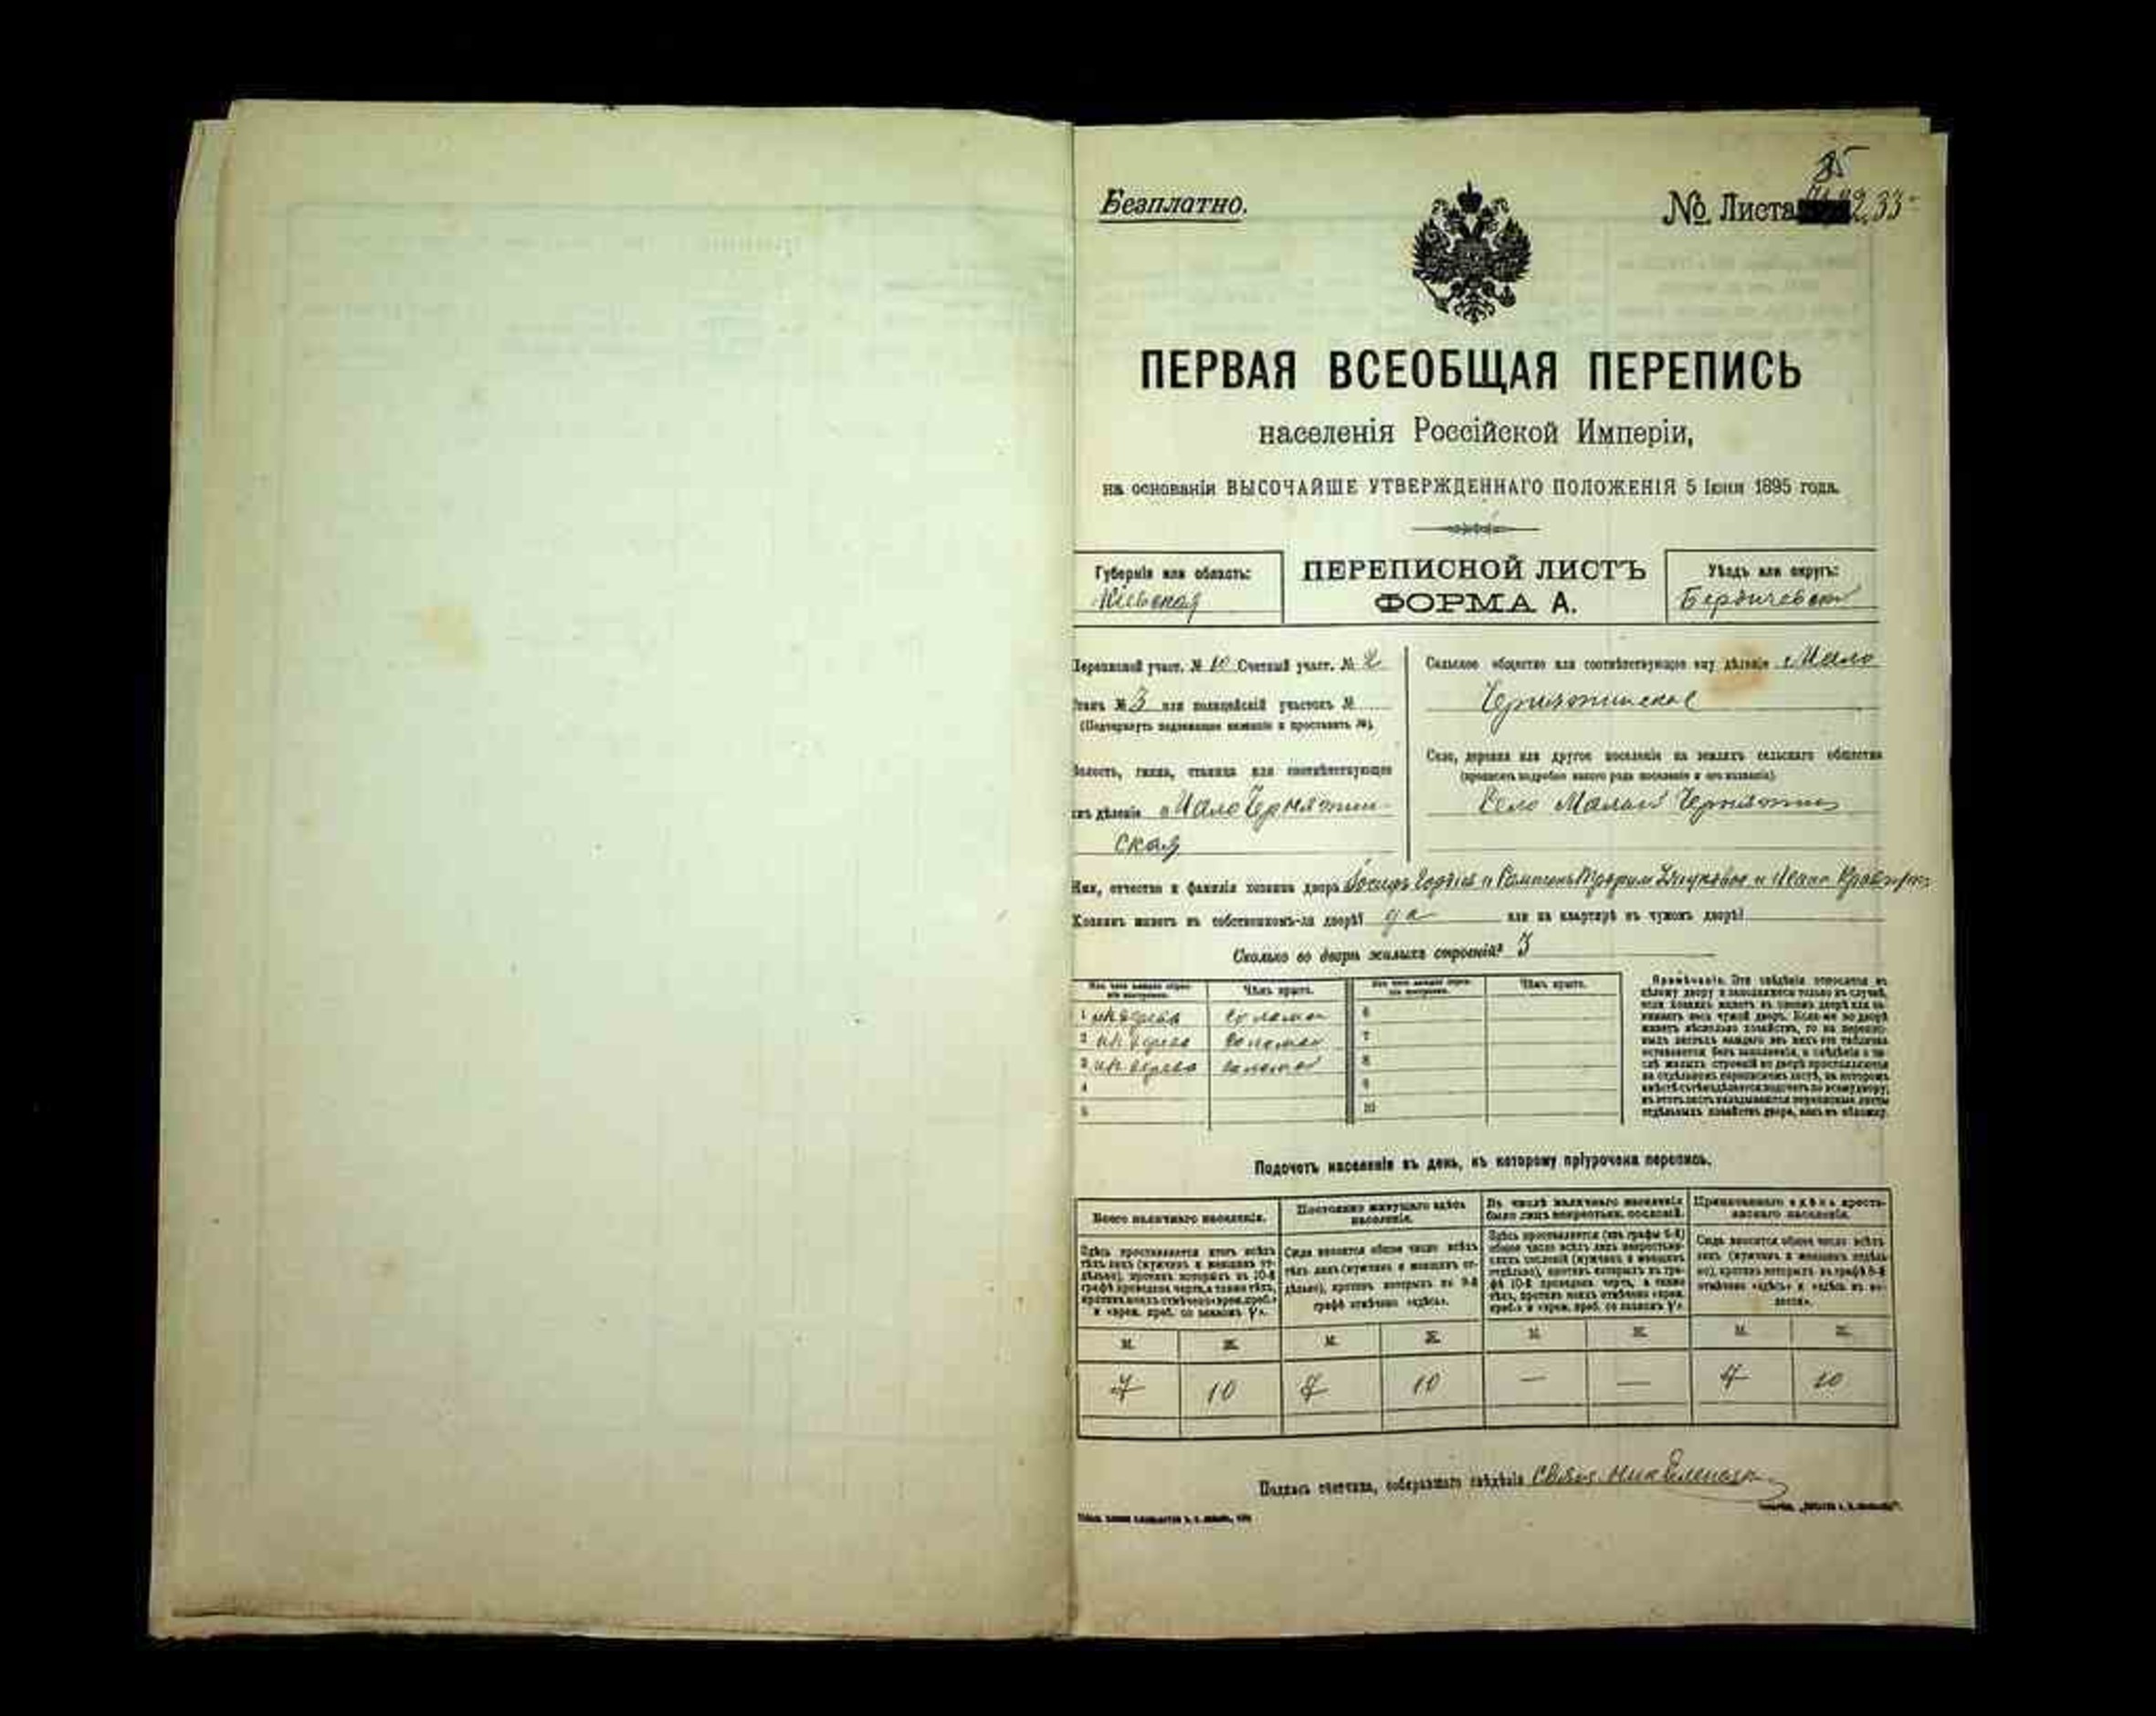 35
Безплатно.
№ Листа 32, 33
ПЕРВАЯ ВСЕОБЩАЯ ПЕРЕПИСЬ
населенія Россійской Имперіи,
на основаніи ВЫСОЧАЙШЕ УТВЕРЖДЕННАГО ПОЛОЖЕНІЯ 5 Іюня 1895 года.
Губернія или область:
Кіевская
ПЕРЕПИСНОЙ ЛИСТЪ
ФОРМА А.
Уѣздъ или округъ:
Бердичевскій
Переписной участ. № 10 Счетный участ. № 2
Станъ № 3 или полицейскій участокъ №
(Подчеркнуть надлежащее названіе и проставить №).
Волость, гмина, станица или соотвѣтствующее
имъ дѣленіе Мало Чернятин-
ская
Сельское общество или соотвѣтствующее ему дѣленіе Мало
Чернятинское
Село, деревня или другое поселеніе на земляхъ сельскаго общества
(прописать подробно какого рода поселеніе и его названіе).
Село Малый Чернятинъ
Имя, отчество и фамилія хозяина двора Іосифъ Гордій и Иванъ
Хозяинъ живетъ въ собственномъ-ли дворѣ? да или на квартирѣ въ чужомъ дворѣ?
Сколько во дворѣ жилыхъ строеній? 3
Изъ чего каждое строеніе построено. Чѣмъ крыто. Изъ чего каждое строеніе построено. Чѣмъ крыто.
1 изъ дерева соломой 6
2 изъ дерева соломой 7
3 изъ дерева соломой 8
4 9
5 10
Примѣчаніе. Эти свѣдѣнія относятся къ
цѣлому двору и заполняются только въ случаѣ,
если хозяинъ живетъ въ своемъ дворѣ или за-
нимаетъ весь чужой дворъ. Если-же во дворѣ
живетъ нѣсколько хозяйствъ, то на перепис-
ныхъ листахъ каждаго изъ нихъ эта табличка
оставляется безъ заполненія, а свѣдѣнія о чи-
слѣ жилыхъ строеній во дворѣ проставляются
на отдѣльномъ переписномъ листѣ, на которомъ
Подсчетъ населенія въ день, къ которому пріурочена перепись.
Всего наличнаго населенія.
Здѣсь проставляется итогъ всѣхъ
тѣхъ лицъ (мужчинъ и женщинъ от-
дѣльно), противъ которыхъ въ 10-й
графѣ проведена черта, а также тѣхъ,
противъ коихъ отмѣчено «врем. преб.»
Постоянно живущаго здѣсь
населенія.
Сюда вносится общее число всѣхъ
тѣхъ лицъ (мужчинъ и женщинъ от-
дѣльно), противъ которыхъ въ 9-й
графѣ отмѣчено «здѣсь».
Въ числѣ наличнаго населенія
было лицъ некрестьян. сословій.
Здѣсь проставляется (изъ графы 4-й)
общее число всѣхъ лицъ некрестьян-
скихъ сословій (мужчинъ и женщинъ
отдѣльно), противъ которыхъ въ гра-
фѣ 10-й проведена черта, а также
тѣхъ, противъ коихъ отмѣчено «врем.
Приписаннаго здѣсь кресть-
янскаго населенія.
Сюда вносится общее число всѣхъ
лицъ (мужчинъ и женщинъ отдѣль-
но), противъ которыхъ въ графѣ 8-й
отмѣчено «здѣсь» и «здѣсь въ во-
лости».
М. Ж. М. Ж. М. Ж. М. Ж.
7 10 7 10 — — 7 10
Подпись счетчика, собиравшаго свѣдѣнія